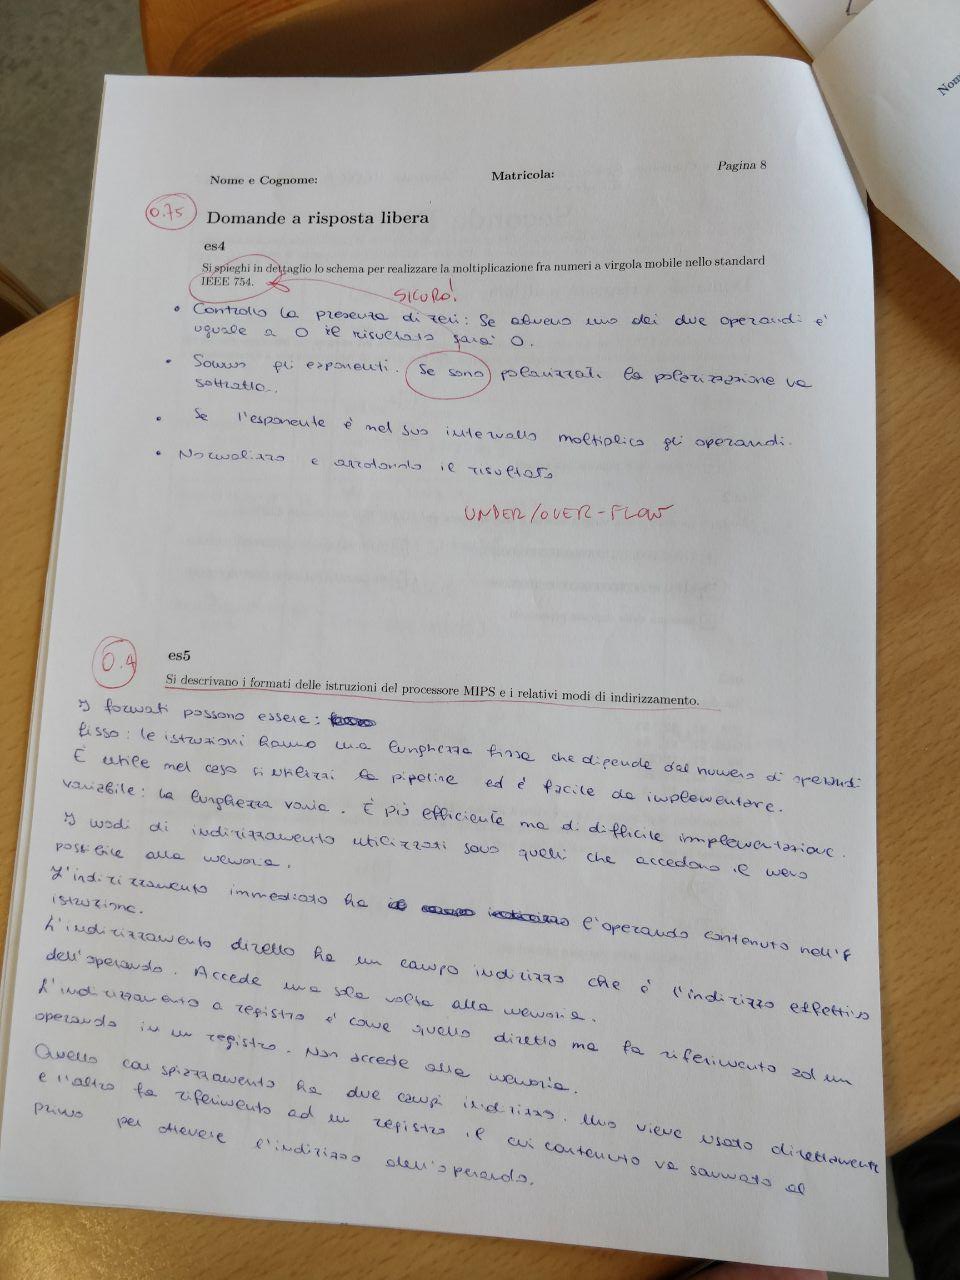 Nom
Pagina 8
Nome e Cognome: Matricola:
0.75
Domande a risposta libera
es4
Si spieghi in dettaglio lo schema per realizzare la moltiplicazione fra numeri a virgola mobile nello standard
IEEE 754.
SICURO!
• Controllo la presenza di zeri: Se almeno uno dei due operandi è
uguale a 0 il risultato sara' 0.
• Sommo gli esponenti. Se sono polarizzati la polarizzazione va
sottratta.
• Se l'esponente è nel suo intervallo moltiplico gli operandi.
• Normalizzo e arrotondo il risultato
UNDER/OVER-FLOW
0.4
es5
Si descrivano i formati delle istruzioni del processore MIPS e i relativi modi di indirizzamento.
I formati possono essere:
fisso: le istruzioni hanno una lunghezza fissa che dipende dal numero di operandi
È utile nel caso si utilizzi la pipeline ed è facile da implementare.
variabile: la lunghezza varia. È più efficiente ma di difficile implementazione.
I modi di indirizzamento utilizzati sono quelli che accedono il meno
possibile alla memoria.
L'indirizzamento immediato ha l'operando contenuto nell'
istruzione.
L'indirizzamento diretto ha un campo indirizzo che è l'indirizzo effettivo
dell'operando. Accede una sola volta alla memoria.
L'indirizzamento a registro è come quello diretto ma fa riferimento ad un
operando in un registro. Non accede alla memoria.
Quello con spiazzamento ha due campi indirizzo. Uno viene usato direttamente
e l'altro fa riferimento ad un registro il cui contenuto va sommato al
primo per ottenere l'indirizzo dell'operando.